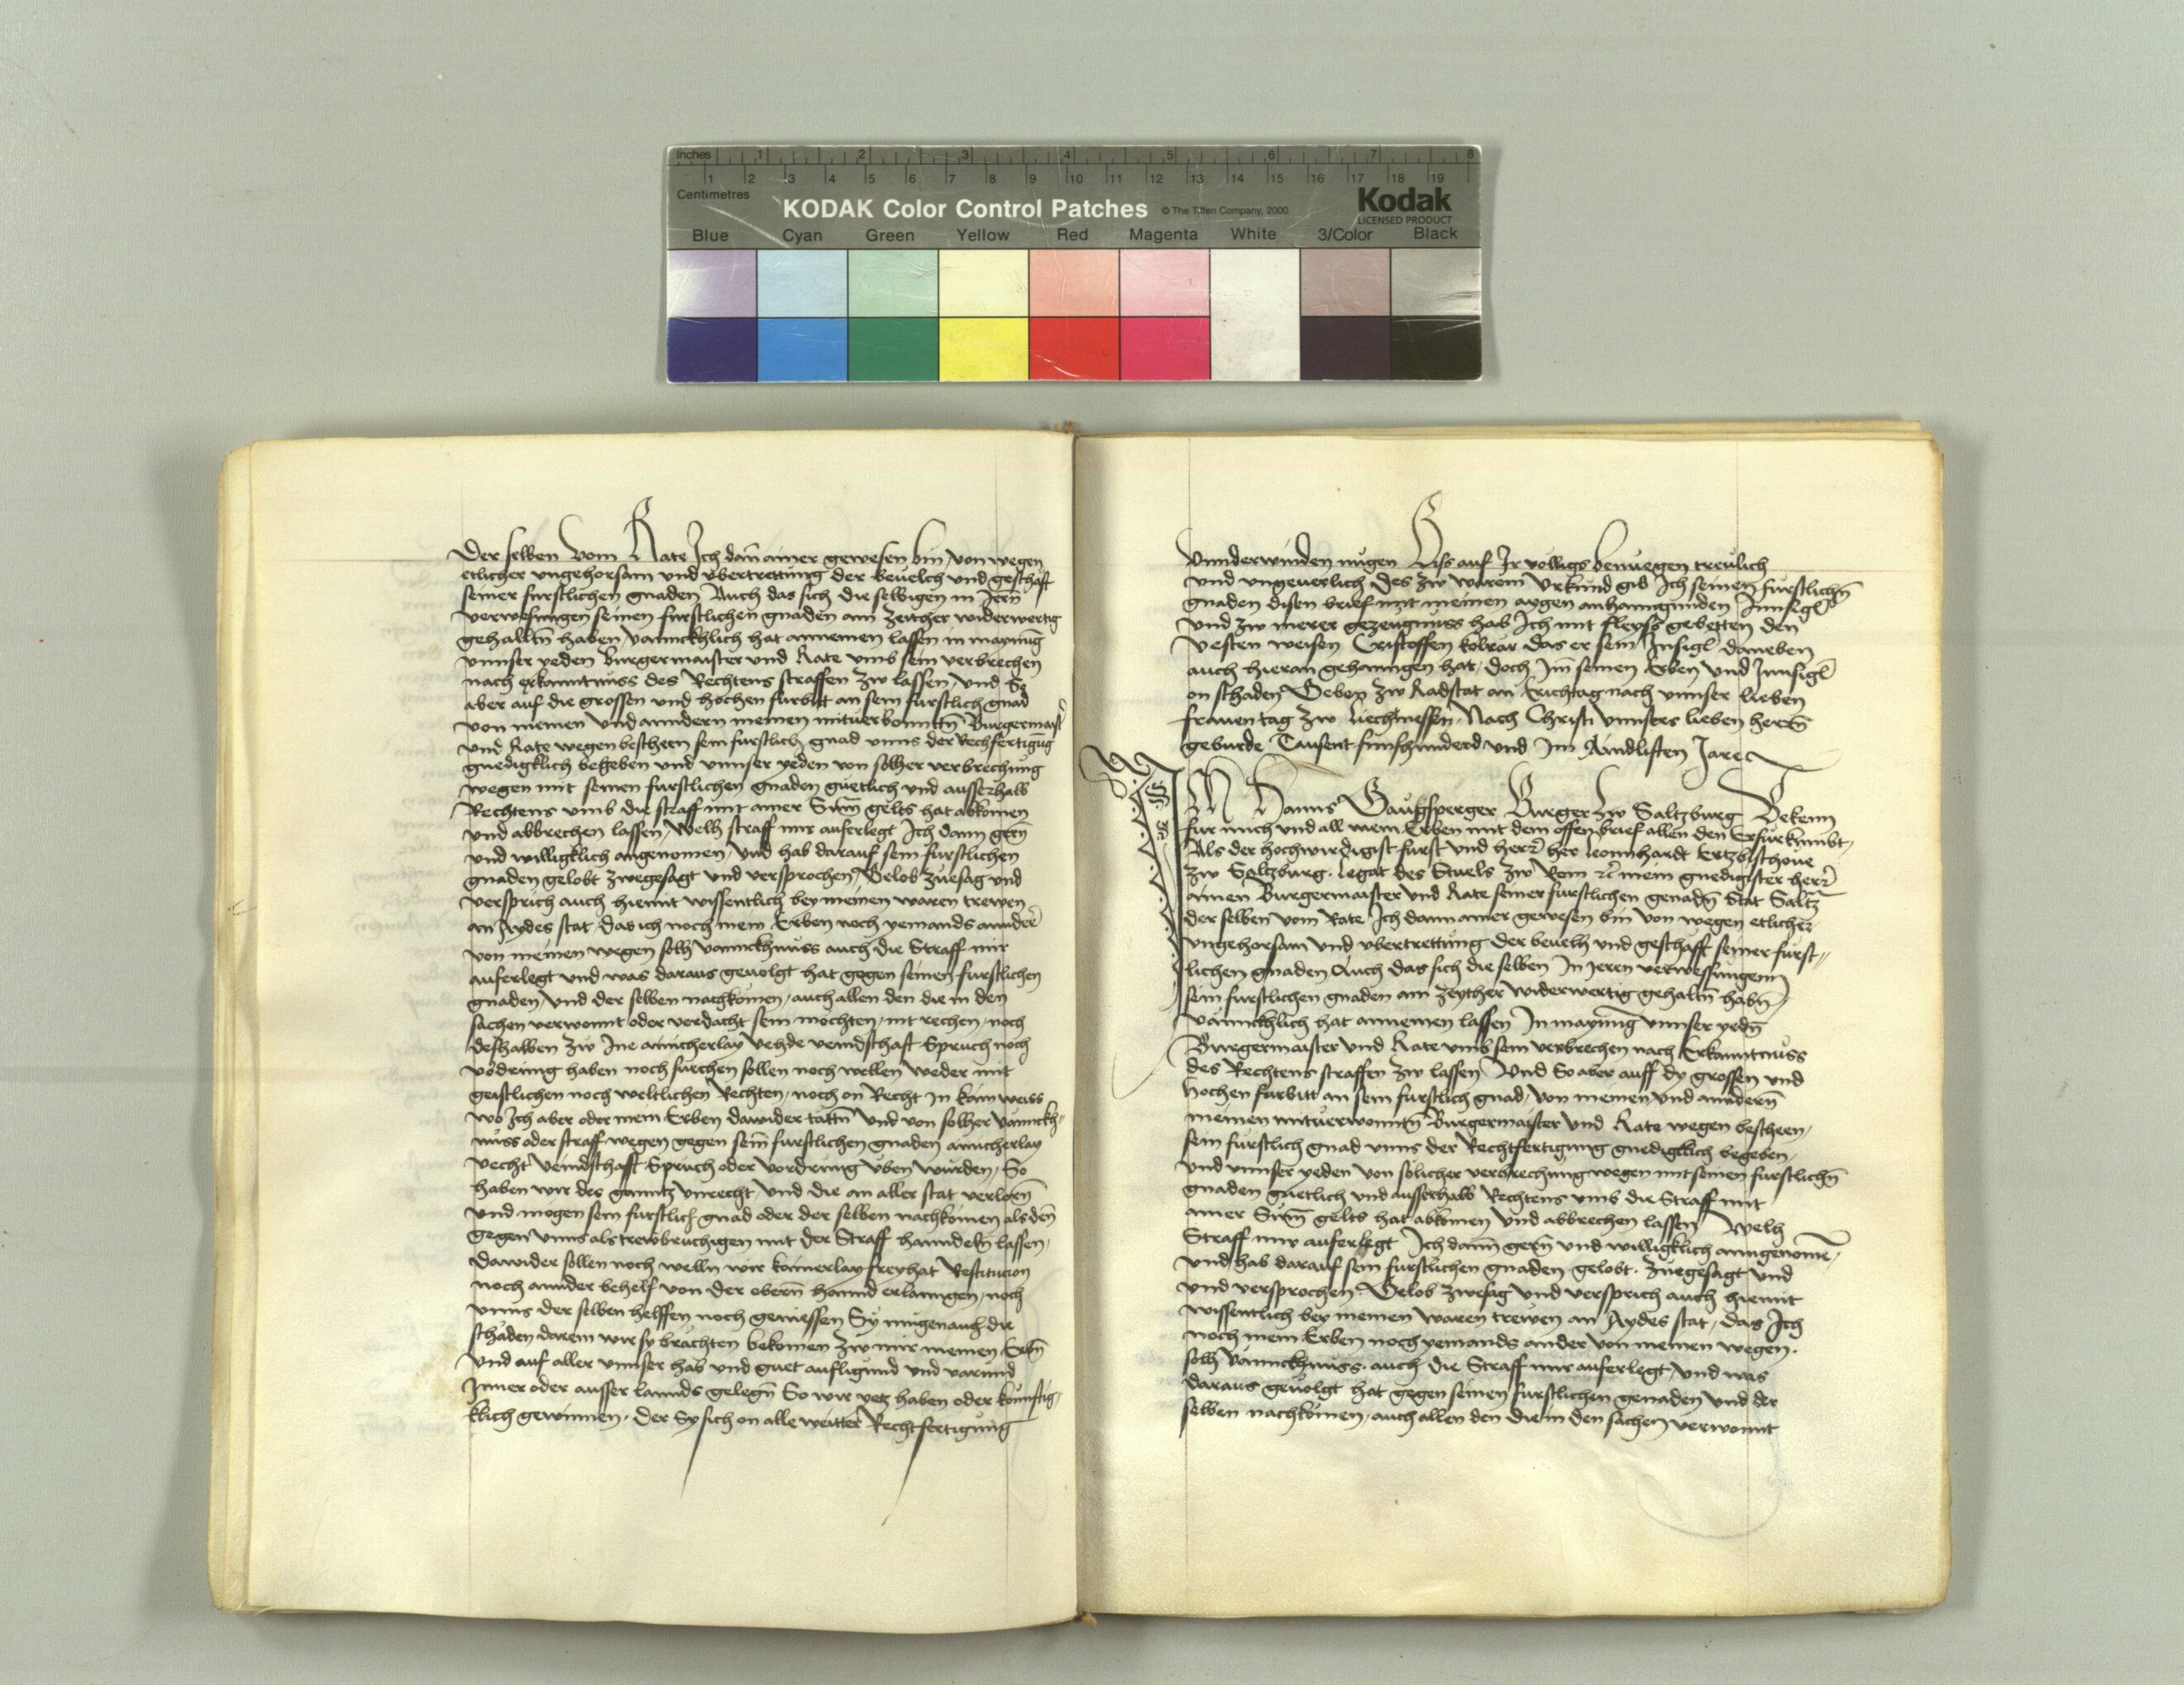 Inches 1 2 3 4 5 6 7 8
1 2 3 4 5 6 7 8 9 10 11 12 13 14 15 16 17 18 19
Centimetres
KODAK Color Control Patches © The Tiffen Company, 2000 Kodak
LICENSED PRODUCT
Blue Cyan Green Yellow Red Magenta White 3/Color Black
Der selben vom Rate Ich dan̄ ainer gewesen bin, von wegen
etlicher ungehorsam und ubertrettung der beuelch und geschäft
seiner furstlichen gnaden Auch das sich die selbigen in Jern̄
verwesungen seinen furstlichen gnaden ain zeither widerwertig
gehalltn̄ haben, vannckhlich hat annemen lassen in maynūg
vnnser yeden burgermaister und Rate umb sein verbrechen
nach erkanntnuss des Rechtens straffen zw lassen, und So
aber auf die grossen und hochen furbitt an sein furstlich gnad
von meinen und anndern meinen mituerbonntn̄ Burgermaist
und Rate wegen bescheen sein furstlich gnad vnns der Rechfertigūg
gnedigklich begeben und vnnser yeden von solher verbrechung
wegen mit seinen furstlichen gnaden guetlich und ausserhalb
Rechtens umb die straff mit ainer Sum̄ gelts hat abkomen
und abbrechen lassen, Welh straff mir auferlegt Ich dann gern̄
und willigklich angenomen, Und hab darauf sein furstlichen
gnaden gelobt zwegesagt und versprochen, Gelob zuesag und
versprich auch hiemit wissentlich bey meinen waren trewen
an Aydes stat das ich noch mein Erben noch yemands annder
von meinen wegen solh vannckhnuss auch die Straff mir
auferlegt und was daraus geuolgt hat gegen seinen furstlichen
gnaden, und der selben nachkomen, auch allen den die in den
sachen verwonnt oder verdacht sein möchten, nit rechen, noch
deshalben zw Ine ainicherlay Vehde veindschaft Spruch noch
vodrung haben noch suechen sollen noch wellen weder mit
geistlichen noch weltlichen Rechten, noch on Recht in kain weiss
wo Ich aber oder mein Erben dawider tättn̄ und von solher Vannckh-
nuss oder straff wegen gegen sein̄ furstlichen gnaden ainicherlay
vecht veindschafft Spruch oder vordrung üben wurden, So
haben wir des ganntz vnrecht, und die an aller stat verlorn̄
und mogen sein furstlich gnad oder der selben nachkomen als den̄
gegen vnns als trewbruchigen mit der Straff hanndeln̄ lassen,
dawider sollen noch welln̄ wir kainerlay freyhat Restitucion
noch annder behelf von der obern̄ hannd erlanngen, noch
vnns der selben helffen noch geniessen Sy mugen auch die
schäden darein wir sy brachten bekomen zw mir meinen Erbn̄
und auf aller vnnser hab und guet aufligund und varund
Inner oder ausser lannds gelegn̄ So wir yetz haben oder kunnftig-
klich gewinnen. Der Sy sich on alle weitter Rechtfertigung
Vnnderwinden mugen Biss auf Ir volligs benuegen treulich
und ungeuerlich Des zw warem Urkund gib Ich seinen furstlichn̄
gnaden disen brief mit meinen aygen anhanngunden Innsigl
und zw merer gezeugnuss hab Ich mit fleyss gebetten den
Vesten weisen Cristoffen kobrar das er sein Insigl daneben
auch hieran gehanngen hat, doch Im seinen Erben und Innsigl
on schaden Geben zw Radstat an Erichtag nach vnnser lieben
frauen tag zw Liechtmessen, Nach Christi vnnsers lieben herrn
geburde Tausent funfhunderd und Im Aindliften Jare
ICH Hanns Gaugsperger Burger zw Saltzburg Bekenn
fur mich und all mein Erben mit dem offen brief allen den Er furkumbt,
Als der hochwirdigist furst und herr her Leonnhardt Ertzbischoue
zw Saltzburg. Legat des Stuels zw Rom rc mein gnedigister herr
ainen Burgermaister und Rate seiner furstlichen genadn̄ Stat Saltz
der selben vom Rate Ich dann ainer gewesen bin von wegen etlicher
vngehorsam und vbertrettung der beuelh und geschafft seiner furst-
lichen gnaden Auch das sich die selben In Jeren verwessungenn
sein furstlichen gnaden ain zeyther widerwertig gehaltn̄ habn̄,
vannckhlich hat annemen lassen In maynung vnnser yedn̄
Burgermaister und Rate umb sein verbrechen nach Erkanntnuss
des Rechtens straffen zw lassen Und So aber auff dy grossen und
hochen furbitt an sein furstlich gnad, von meinen und anndern̄
meinen mituerwonntn̄ Burgermaister und Rate wegen bescheen,
sein furstlich gnad vnns der Rechtfertigung gnedigklich begeben,
und vnnser yeden von solicher verbrechung wegen mit seinen furstlichn̄
gnaden guetlich und ausserhalb Rechtens umb die Straff mit
ainer Sum̄ gelts hat abkomen und abbrechen lassen Welh
Straff mir auferlegt Ich dann gern̄ und willigklich anngenomē,
und hab darauf sein furstlichen gnaden gelobt. zuegesagt und
und versprochen Gelob zwesag und versprich auch hiemit
wissentlich bey meinen waren trewen an Aydes stat, das Ich
noch mein Erben noch yemands ander von meinen wegen.
solh Vannckhnuss. auch die Straff mir auferlegt, und was
daraus geuolgt hat gegen seinen furstlichen genaden und der
selben nachkomen, auch allen den die in den sachen verwonnt